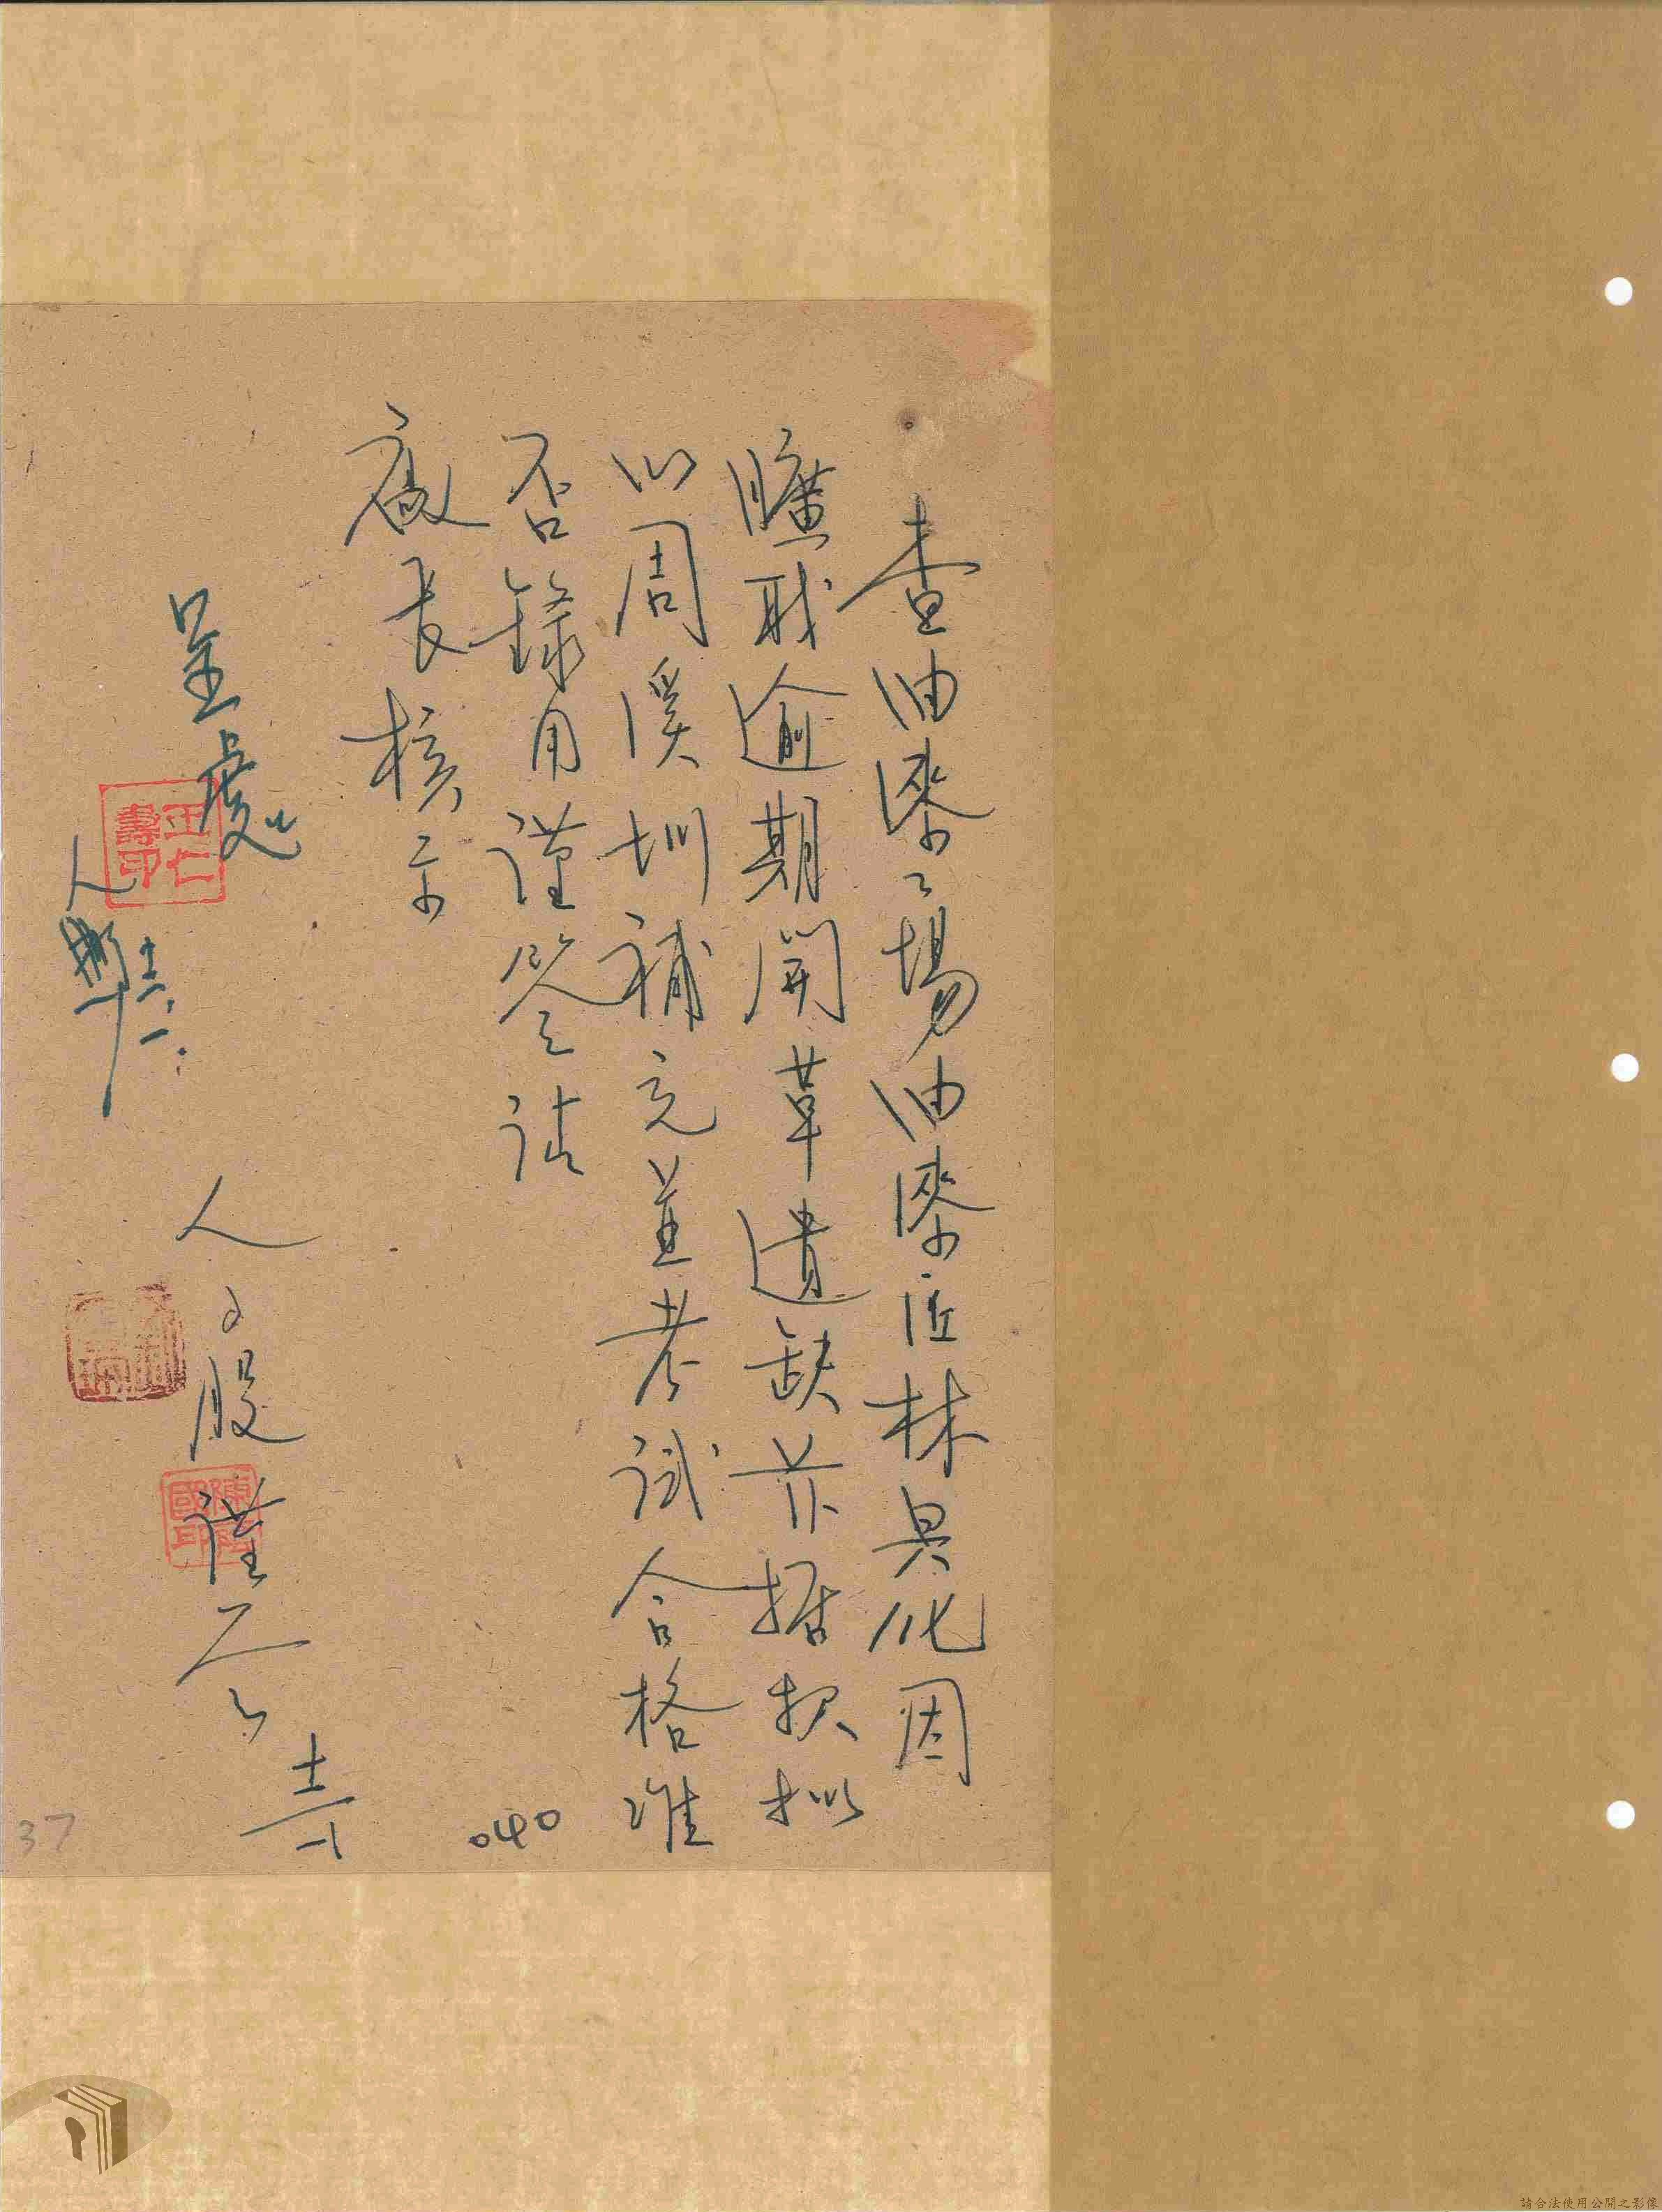 查油漆工場油漆匠林具化因
曠職逾期開革遺缺並据報擬
以周溪圳補充並考試合格准
否錄用謹簽請
廠長核示
呈處
王仁壽印
人
人事股謹簽
十一
040
37
請合法使用公開之影像